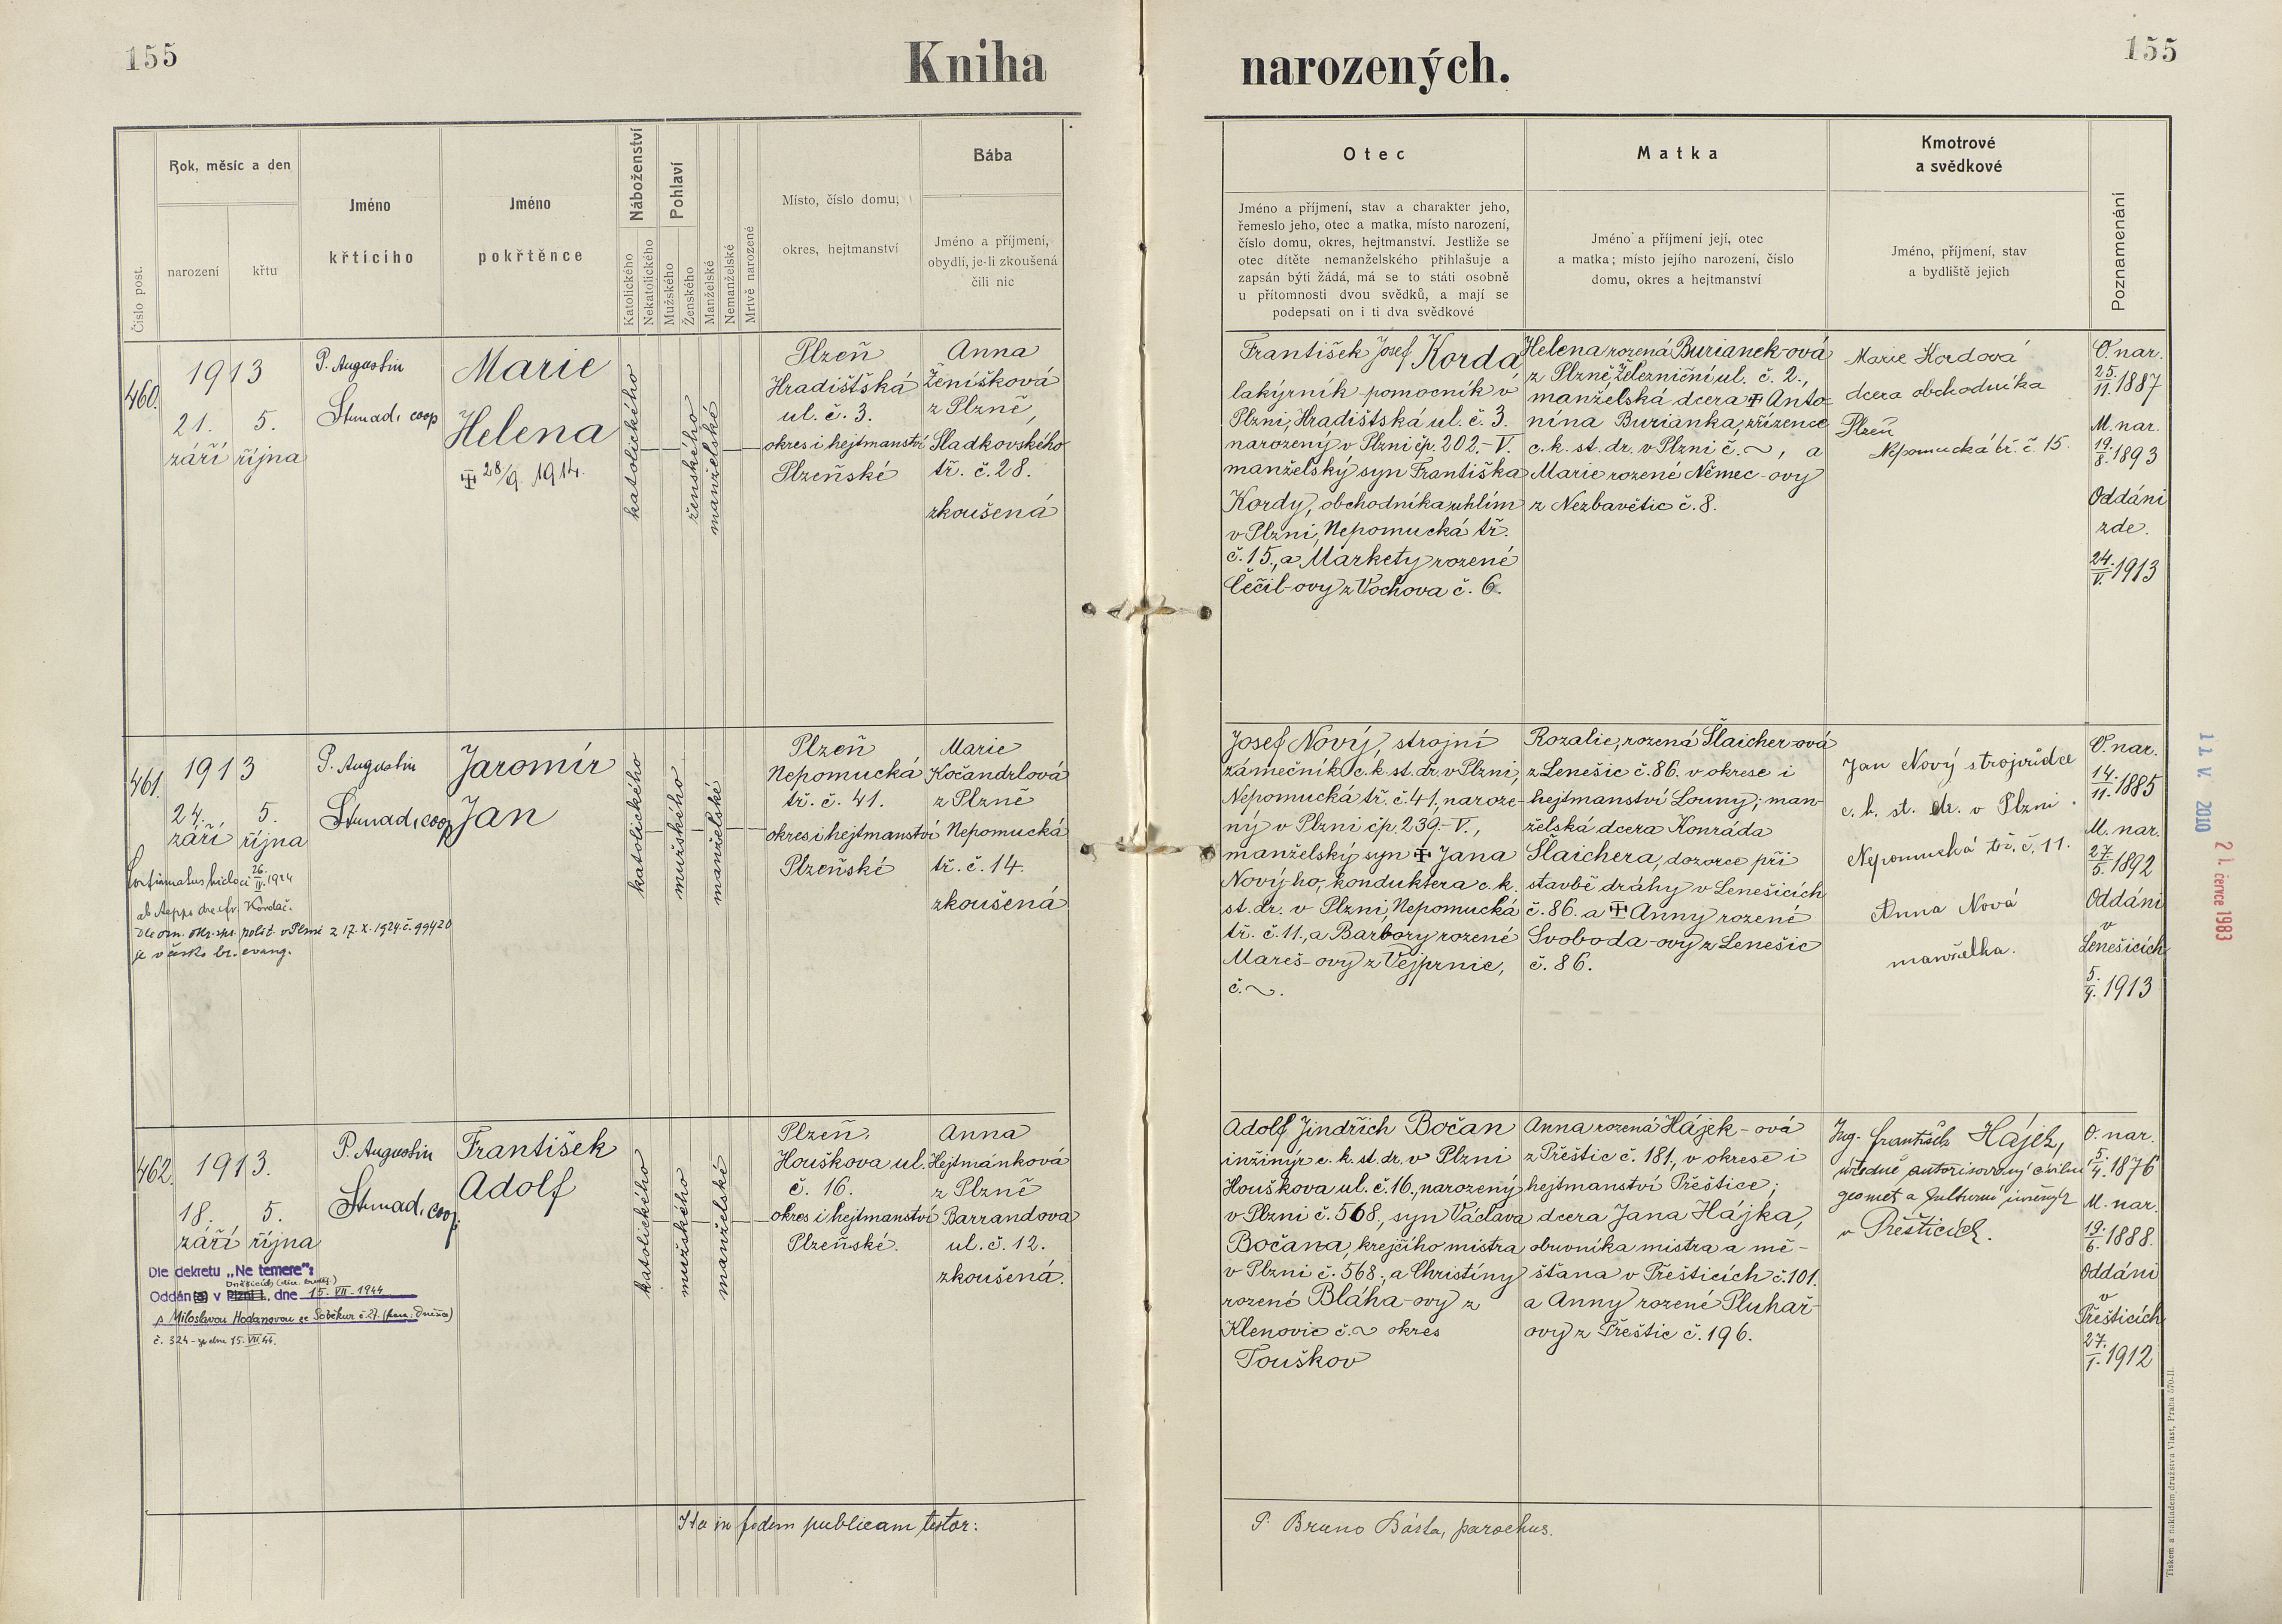 155
Kniha
narozených.
155
Číslo post.
Rok, měsíc a den
narození
křtu
Jméno
křtícího
Jméno
pokřtěnce
Náboženství
Katolického
Nekatolického
Pohlaví
Mužského
Ženského
Manželské
Nemanželské
Mrtvě narozené
Místo, číslo domu,
okres, hejtmanství
Bába
Jméno a příjmení,
obydlí, je-li zkoušená
čili nic
Otec
Jméno a příjmení, stav a charakter jeho,
řemeslo jeho, otec a matka, místo narození,
číslo domu, okres, hejtmanství. Jestliže se
otec dítěte nemanželského přihlašuje a
zapsán býti žádá, má se to státi osobně
u přítomnosti dvou svědků, a mají se
podepsati on i ti dva svědkové
Matka
Jméno a příjmení její, otec
a matka; místo jejího narození, číslo
domu, okres a hejtmanství
Kmotrové
a svědkové
Jméno, příjmení, stav
a bydliště jejich
Poznamenání
460.
1913
21. 5.
září října
P. Augustin
Strnad, coop
Marie
Helena
28/9. 1914.
katolického
ženského
manželské
Plzeň
Hradištská
ul. č. 3.
okres i hejtmanství
Plzeňské
Anna
Ženíšková
z Plzně,
Sladkovského
tř. č. 28.
zkoušená
František Josef Korda
lakýrník-pomocník v
Plzni, Hradištská ul. č. 3.
narozený v Plzni čp. 202.-V.
manželský syn Františka
Kordy, obchodníka uhlím
v Plzni, Nepomucká tř.
č. 15., a Markety rozené
Čěčil-ovy z Vochova č. 6.
Helena rozená Burianek-ová
z Plzně, Železniční ul. č. 2.,
manželská dcera Anto-
nína Burianka, zřízence
c. k. st. dr. v Plzni č. ~, a
Marie rozené Němec-ovy
z Nezbavětic č. 8.
Marie Kordová
dcera obchodníka
Plzeň
Nepomucká tř. č. 15.
O. nar.
25./11. 1887
M. nar.
19./8. 1893
Oddáni
zde.
24./V. 1913
461.
1913
24. 5.
září října
Confirmatus hicloci 26./IV. 1924
ab Aeppo dre fr. Kordač.
Dle ozn. okr. spr. polit. v Plzni z 17. X. 1924 č. 99420
je v česko br. evang.
P. Augustin
Strnad, coop
Jaromír
Jan
katolického
mužského
manželské
Plzeň
Nepomucká
tř. č. 41.
okres i hejtmanství
Plzeňské
Marie
Kočandrlová
z Plzně
Nepomucká
tř. č. 14.
zkoušená
Josef Nový, strojní
zámečník c. k. st. dr. v Plzni,
Nepomucká tř. č. 41, naroze-
ný v Plzni čp. 239.-V.,
manželský syn Jana
Nový ho, konduktera c. k.
st. dr. v Plzni, Nepomucká
tř. č. 11., a Barbory rozené
Mareš-ovy z Vejprnic,
č. ~.
Rozalie, rozená Šlaicher-ová
z Lenešic č. 86. v okrese i
hejtmanství Louny; man-
želská dcera Konráda
Šlaichera, dozorce při
stavbě dráhy v Lenešicích
č. 86. a Anny rozené
Svoboda-ovy z Lenešic
č. 86.
Jan Nový strojvůdce
c. k. st. dr. v Plzni.
Nepomucká tř. č. 11.
Anna Nová
manželka.
O. nar.
14./11. 1885
M. nar.
27./5. 1892
Oddáni
v
Lenešicích
5./4. 1913
11. V. 2010
21. července 1983
462.
1913.
18. 5.
září října
Dle dekretu „Ne temere":
Oddán v Plzni I., dne 15. VII. 1944
s Miloslavou Hodanovou ze Soběkur č. 27.
č. 324 - ze dne 15. VII. 44.
P. Augustin
Strnad, coop.
František
Adolf
katolického
mužského
manželské
Plzeň,
Houškova ul.
č. 16.
okres i hejtmanství
Plzeňské.
Anna
Hejtmánková
z Plzně
Barrandova
ul. č. 12.
zkoušená.
Adolf Jindřich Bočan
inžinýr c. k. st. dr. v Plzni
Houškova ul. č. 16., narozený
v Plzni č. 568., syn Václava
Bočana, krejčího mistra
v Plzni č. 568., a Christiny
rozené Bláha-ovy z
Klenovic č. ~ okres
Touškov
Anna rozená Hájek-ová
z Přeštic č. 181., v okrese i
hejtmanství Přeštice;
dcera Jana Hájka,
obuvníka mistra a mě-
šťana v Přešticích č. 101.
a Anny rozené Pluhař-
ovy z Přeštic č. 196.
Ing. František Hájek,
úředně autorisovaný civilní
geometr a kulturní inženýr
v Přešticích.
O. nar.
5./4. 1876
M. nar.
19./6. 1888.
Oddáni
v
Přešticích
27./1. 1912
Ita in fidem publicam testor:
P. Bruno Bárta, parochus.
Tiskem a nákladem družstva Vlast, Praha 570-II.